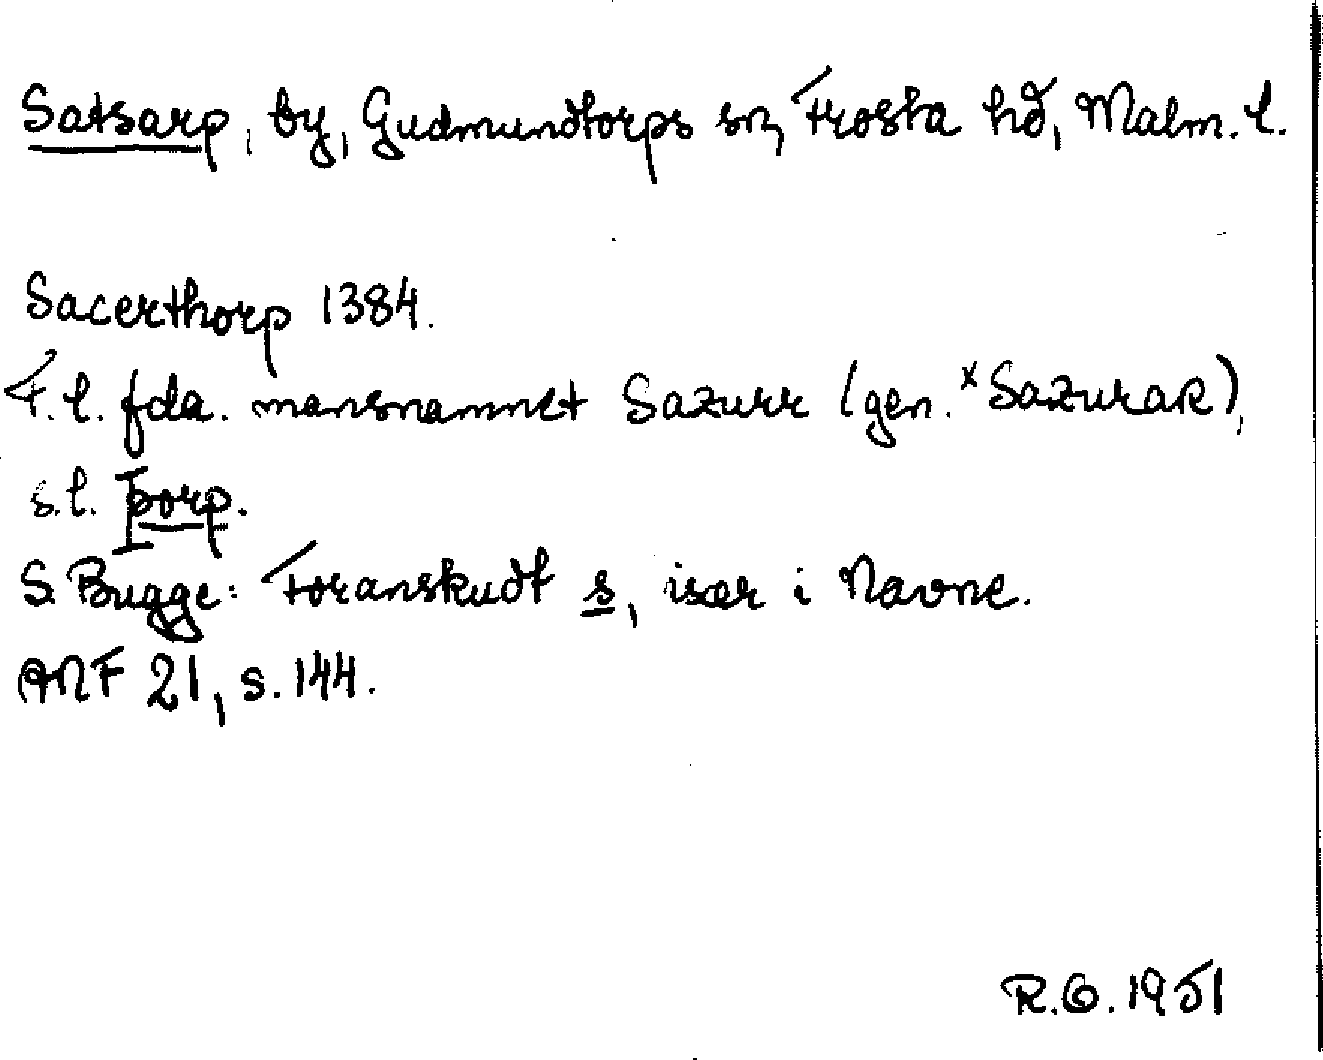 Satsarp, by, Gudmundtorps sn, Frosta hd, Malm. l.
Sacerthorp 1384.
F. l. fda. mansnamnet Sazurr (gen. ×Sazurar),
s.l. Þorp.
S. Bugge: Foranskudt s, især i Navne.
ANF 21, s. 144.
R.G. 1951